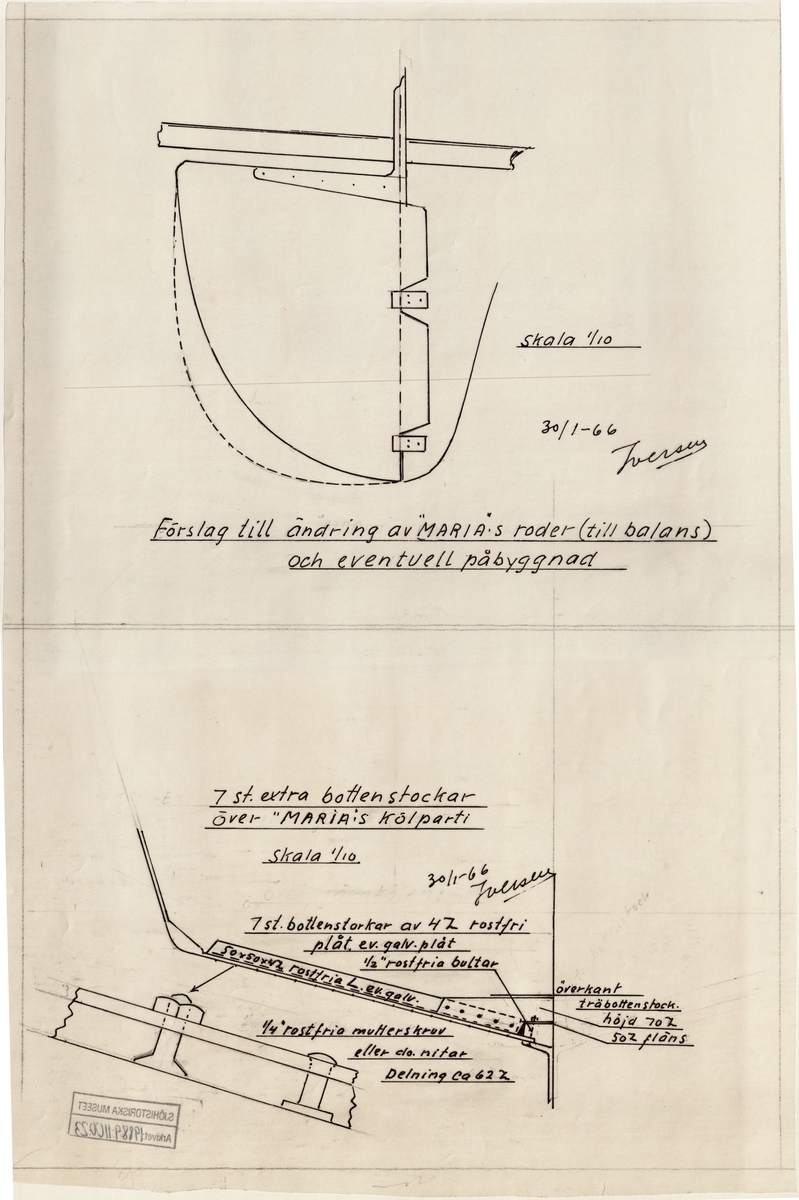 Skala 1/10
30/1-66
Iversen
Förslag till ändring av "MARIA":s roder (till balans)
och eventuell påbyggnad
7 st. extra bottenstockar
över "MARIA:s kölparti
Skala 1/10
30/1-66
Iversen
7 st. bottenstorkar av 4Z rostfri
plåt, ev. galv. plåt
1/2" rostfria bultar
50x50x4Z rostfria L. ev. galv.
överkant
träbottenstock.
höjd 70Z
50Z fläns
1/4" rostfria mutterskruv
eller do. nitar
Delning ca 62Z
SJÖHISTORISKA MUSEET
Arkivet